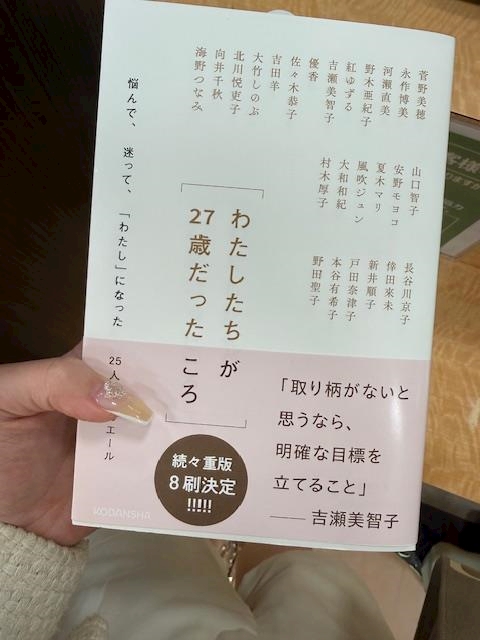 菅野美穂
永作博美
河瀨直美
野木亜紀子
紅ゆずる
吉瀬美智子
優香
佐々木恭子
吉田羊
大竹しのぶ
北川悦吏子
向井千秋
海野つなみ
山口智子
安野モヨコ
夏木マリ
風吹ジュン
大和和紀
村木厚子
長谷川京子
倖田來未
新井順子
戸田奈津子
本谷有希子
野田聖子
わたしたちが
27歳だったころ
悩んで、迷って、「わたし」になった 25人 エール
「取り柄がないと
思うなら、
明確な目標を
立てること」
——吉瀬美智子
続々重版
8刷決定
!!!!!
KODANSHA
客様